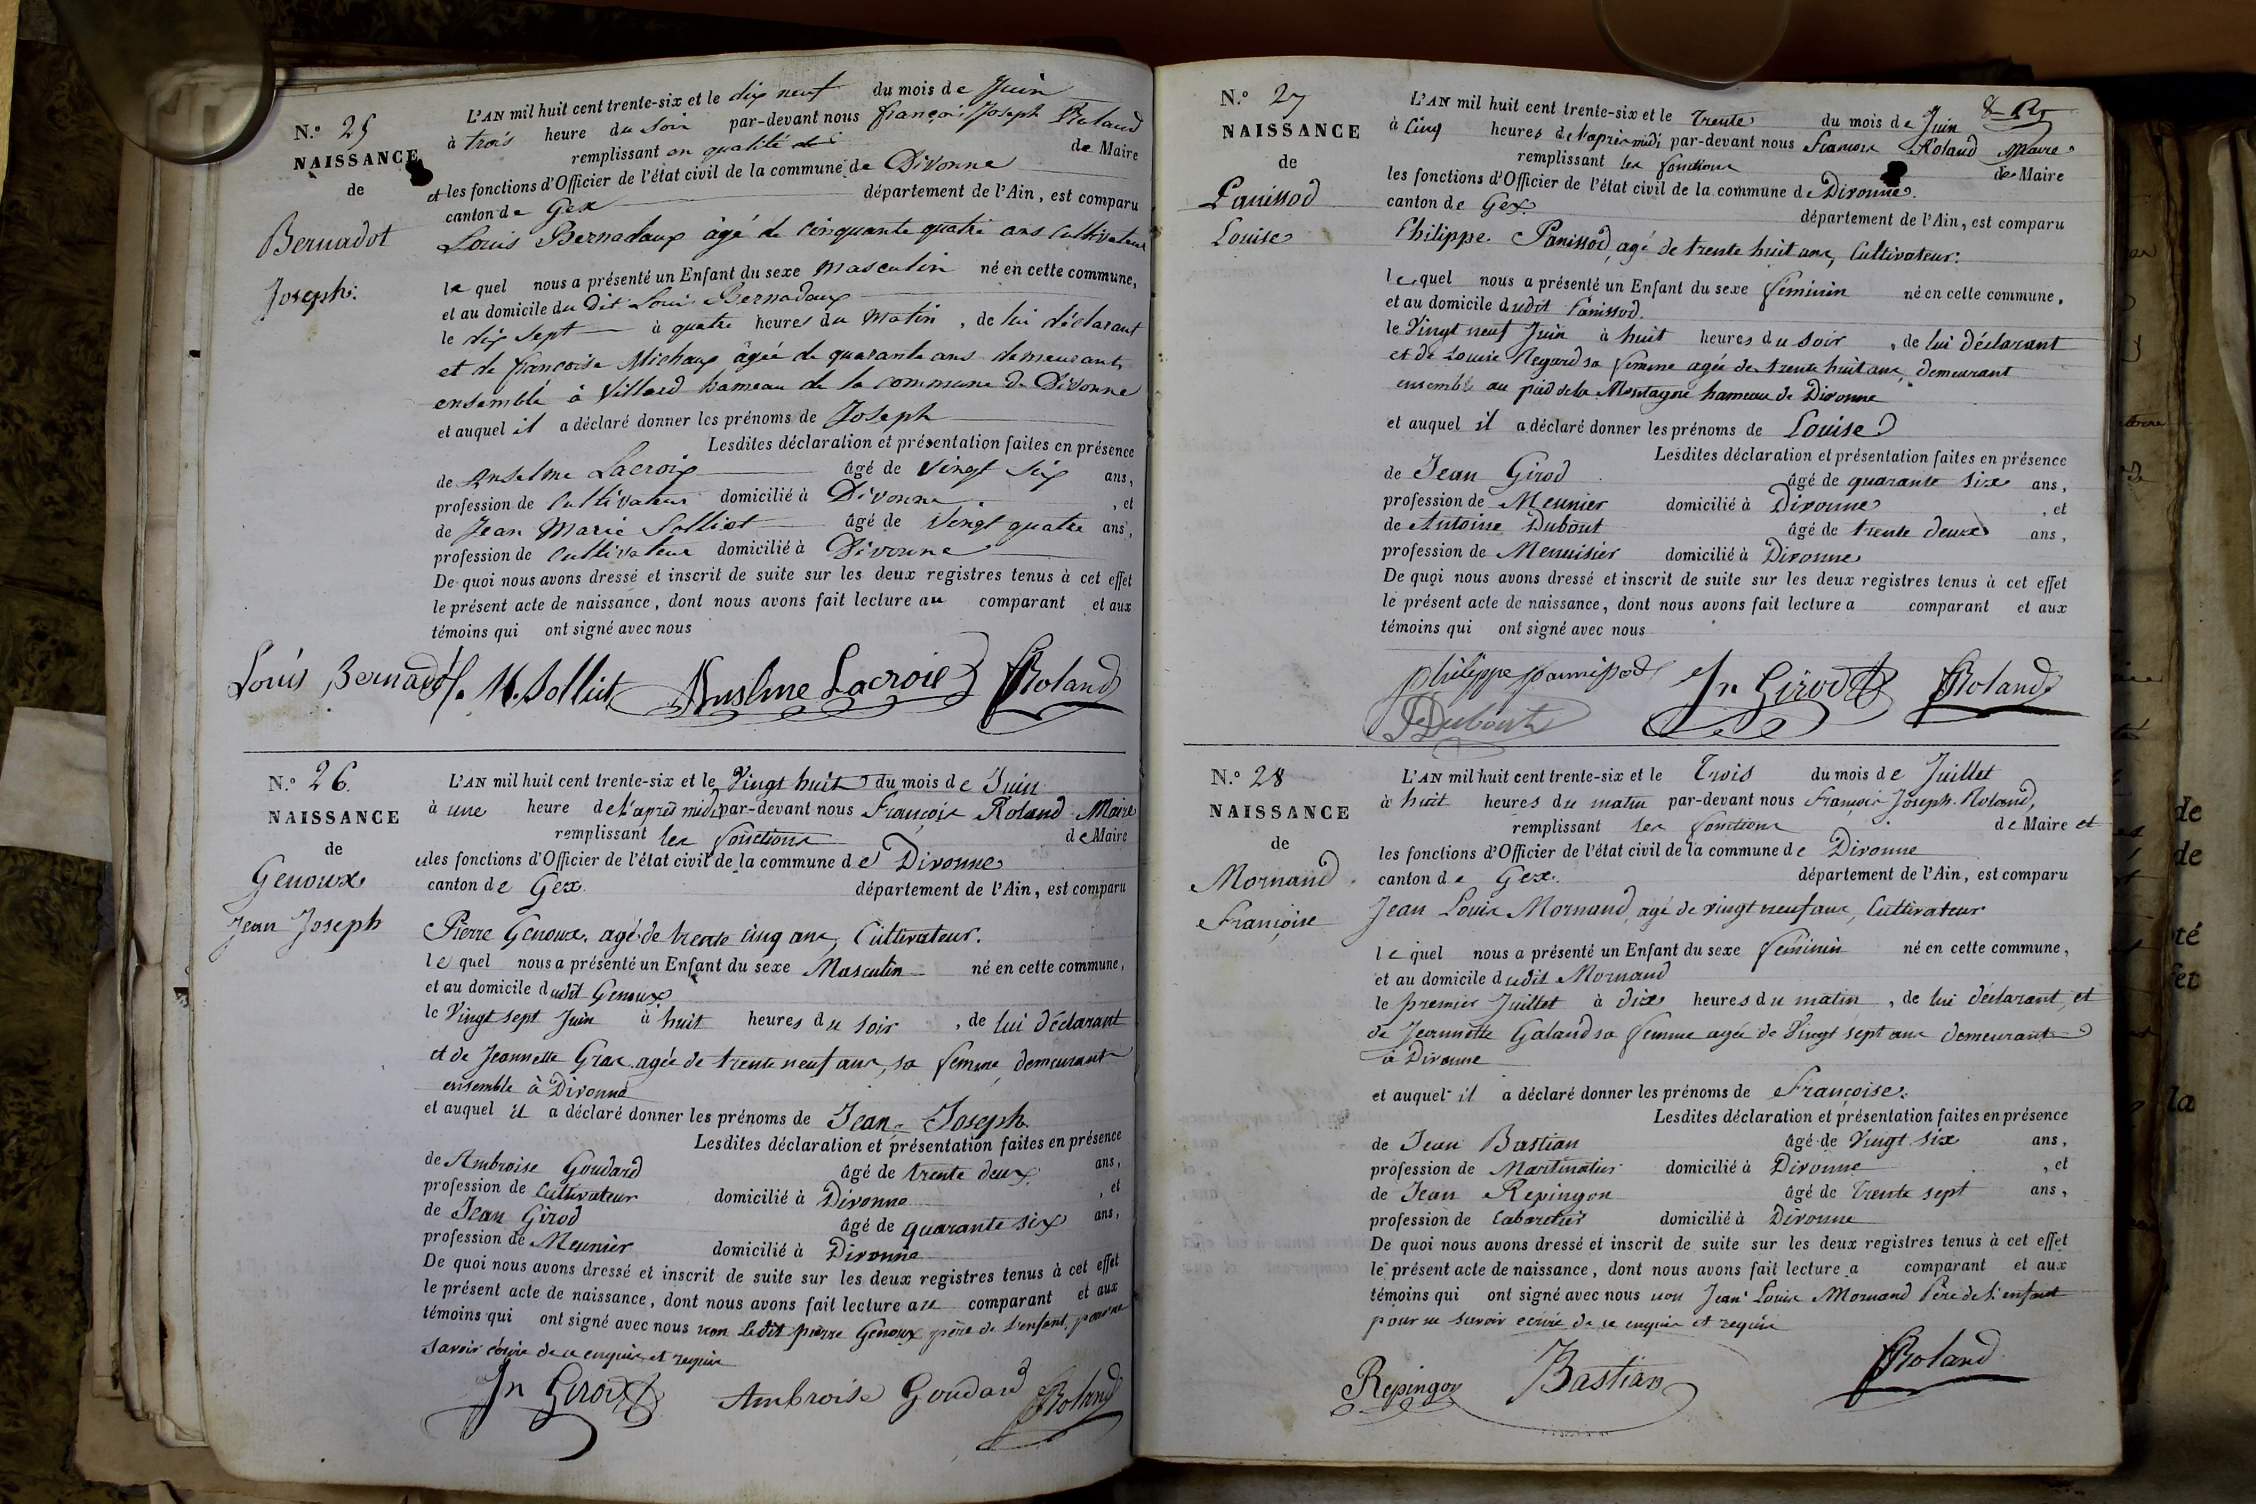 N.º 25
NAISSANCE
de
Bernadot
Joseph.
L'AN mil huit cent trente-six et le dix neuf du mois de Juin
à trois heure du soir par-devant nous françois Joseph Roland
remplissant en qualité de de Maire
et les fonctions d'Officier de l'état civil de la commune de Divonne
canton de Gex département de l'Ain, est comparu
Louis Bernadaux âgé de cinquante quatre ans Cultivateur
le quel nous a présenté un Enfant du sexe masculin né en cette commune,
et au domicile du Dit Louis Bernadaux
le dix sept à quatre heures du matin, de lui déclarant
et de françoise Michaux âgée de quarante ans demeurants
ensemble à Villard hameau de la commune de Divonne
et auquel il a déclaré donner les prénoms de Joseph
Lesdites déclaration et présentation faites en présence
de Anselme Lacroix âgé de vingt six ans,
profession de Cultivateur domicilié à Divonne, et
de Jean Marie Solliet âgé de vingt quatre ans,
profession de Cultivateur domicilié à Divonne
De quoi nous avons dressé et inscrit de suite sur les deux registres tenus à cet effet
le présent acte de naissance, dont nous avons fait lecture au comparant et aux
témoins qui ont signé avec nous
Louis Bernadot J. M. Solliet Anselme Lacroix Roland
N.º 26.
NAISSANCE
de
Genoux
Jean Joseph
L'AN mil huit cent trente-six et le Vingt huit du mois de Juin
à une heure de l'après midi par-devant nous François Roland Maire
remplissant les fonctions de Maire
et les fonctions d'Officier de l'état civil de la commune de Divonne
canton de Gex. département de l'Ain, est comparu
Pierre Genoux, agé de trente cinq ans, Cultivateur.
le quel nous a présenté un Enfant du sexe Masculin né en cette commune,
et au domicile dudit Genoux
le Vingt sept Juin à huit heures du soir, de lui déclarant
et de Jeannette Gras agée de trente neuf ans, sa femme, demeurant
ensemble à Divonne
et auquel il a déclaré donner les prénoms de Jean-Joseph.
Lesdites déclaration et présentation faites en présence
de Ambroise Goudard âgé de trente deux ans,
profession de Cultivateur domicilié à Divonne, et
de Jean Girod âgé de quarante six ans,
profession de Meunier domicilié à Divonne
De quoi nous avons dressé et inscrit de suite sur les deux registres tenus à cet effet
le présent acte de naissance, dont nous avons fait lecture au comparant et aux
témoins qui ont signé avec nous non ledit pierre Genoux père de l'enfant, pour ne
savoir écrire de ce enquis et requis
Jn Girod Ambroise Goudard Roland
N.º 27
NAISSANCE
de
Panissod
Louise
L'AN mil huit cent trente-six et le trente du mois de Juin
à Cinq heures de l'après midi par-devant nous Francois Roland Maire
remplissant les fonctions de Maire
les fonctions d'Officier de l'état civil de la commune de Divonne.
canton de Gex. département de l'Ain, est comparu
Philippe Panissod, agé de trente huit ans, Cultivateur.
le quel nous a présenté un Enfant du sexe féminin né en cette commune,
et au domicile dudit Panissod.
le Vingt neuf Juin à huit heures du soir, de lui déclarant
et de Louise Regard sa femme agée de trente huit ans, demeurant
ensemble au pied de la Montagne hameau de Divonne
et auquel il a déclaré donner les prénoms de Louise
Lesdites déclaration et présentation faites en présence
de Jean Girod âgé de quarante six ans,
profession de Meunier domicilié à Divonne, et
de Antoine Dubout âgé de trente deux ans,
profession de Menuisier domicilié à Divonne
De quoi nous avons dressé et inscrit de suite sur les deux registres tenus à cet effet
le présent acte de naissance, dont nous avons fait lecture a comparant et aux
témoins qui ont signé avec nous
philippe pannissod Jn Girod Roland
Dubout
N.º 28
NAISSANCE
de
Mornand
Françoise
L'AN mil huit cent trente-six et le Trois du mois de Juillet
à huit heures du matin par-devant nous François Joseph Roland,
remplissant les fonctions de Maire et
les fonctions d'Officier de l'état civil de la commune de Divonne
canton de Gex. département de l'Ain, est comparu
Jean Louis Mornand, agé de vingt neuf ans, Cultivateur
le quel nous a présenté un Enfant du sexe féminin né en cette commune,
et au domicile dudit Mornand
le premier Juillet à dix heures du matin, de lui déclarant, et
de Jeannette Galand sa femme agée de Vingt sept ans demeurant
à Divonne
et auquel il a déclaré donner les prénoms de Françoise.
Lesdites déclaration et présentation faites en présence
de Jean Bastian âgé de Vingt six ans,
profession de Martinateur domicilié à Divonne, et
de Jean Repingon âgé de Trente sept ans,
profession de Cabaretier domicilié à Divonne
De quoi nous avons dressé et inscrit de suite sur les deux registres tenus à cet effet
le présent acte de naissance, dont nous avons fait lecture a comparant et aux
témoins qui ont signé avec nous non Jean Louis Mornand Père de l'enfant
pour ne savoir écrire de ce enquis et requis
Repingon Bastian Roland